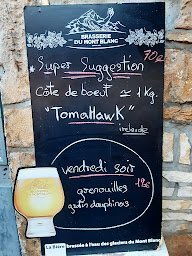 BRASSERIE
DU MONT BLANC
* Super Suggestion
Côte de bœuf ≃ 1 Kg.
"TomaHawK"
irelande
vendredi soir
grenouilles
gratin dauphinois
La Bière brassée à l'eau des glaciers du Mont Blanc